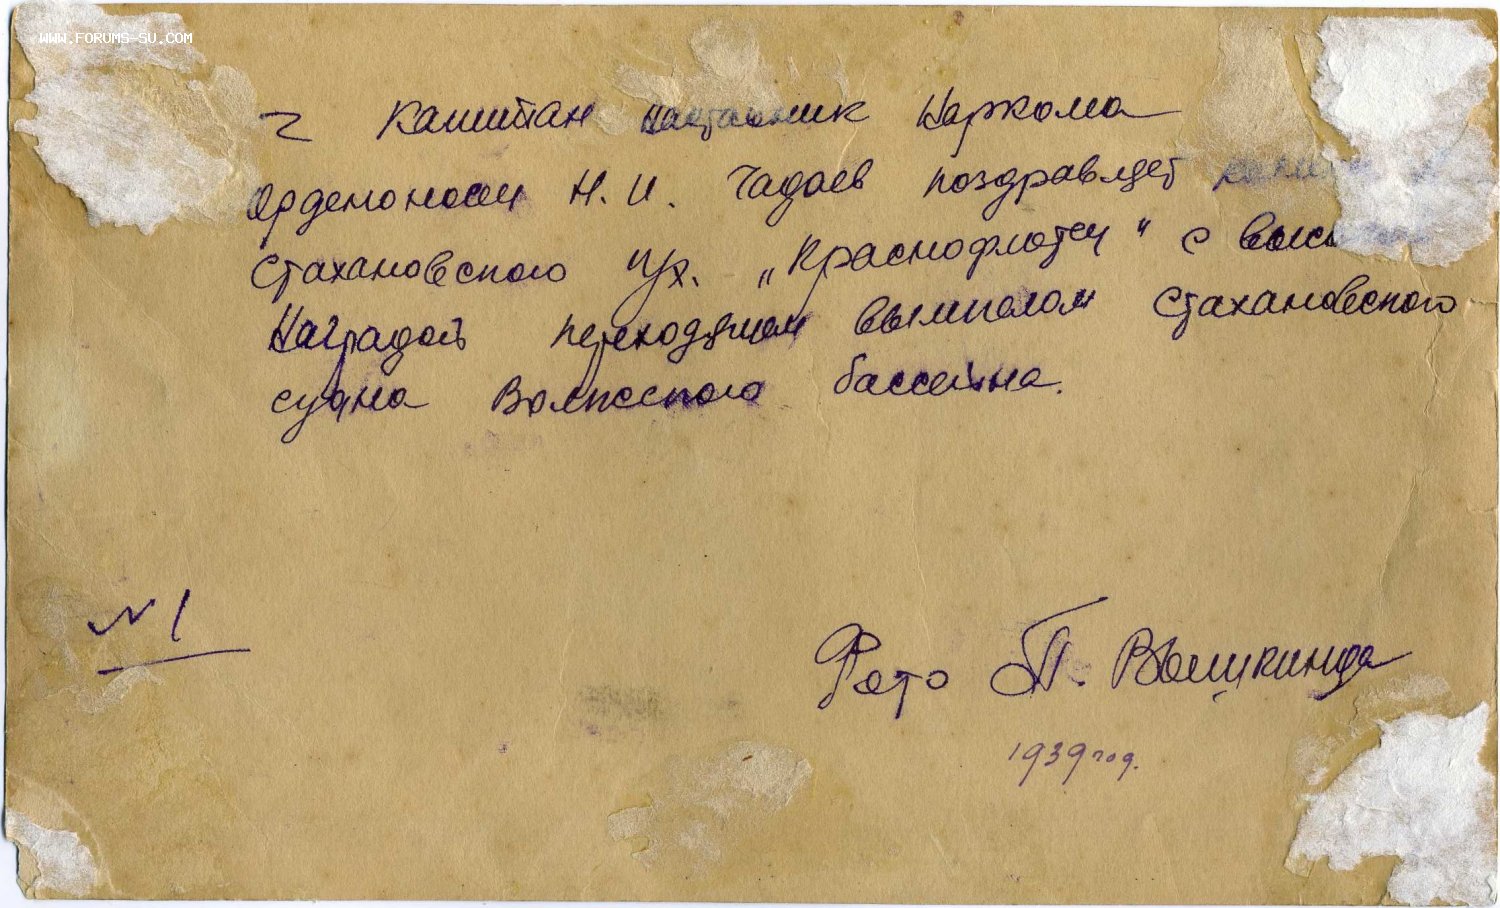 WWW.FORUMS-SU.COM
Капитан Наставник Наркома
Орденоносец Н. И. Чадаев поздравляет
Стахановского п/х. „Краснофлотец" с
Наградой переходящем вымпелом Стахановского
судна Волжского бассейна.
№ 1
Фото П. Вышкинда
1939 год.